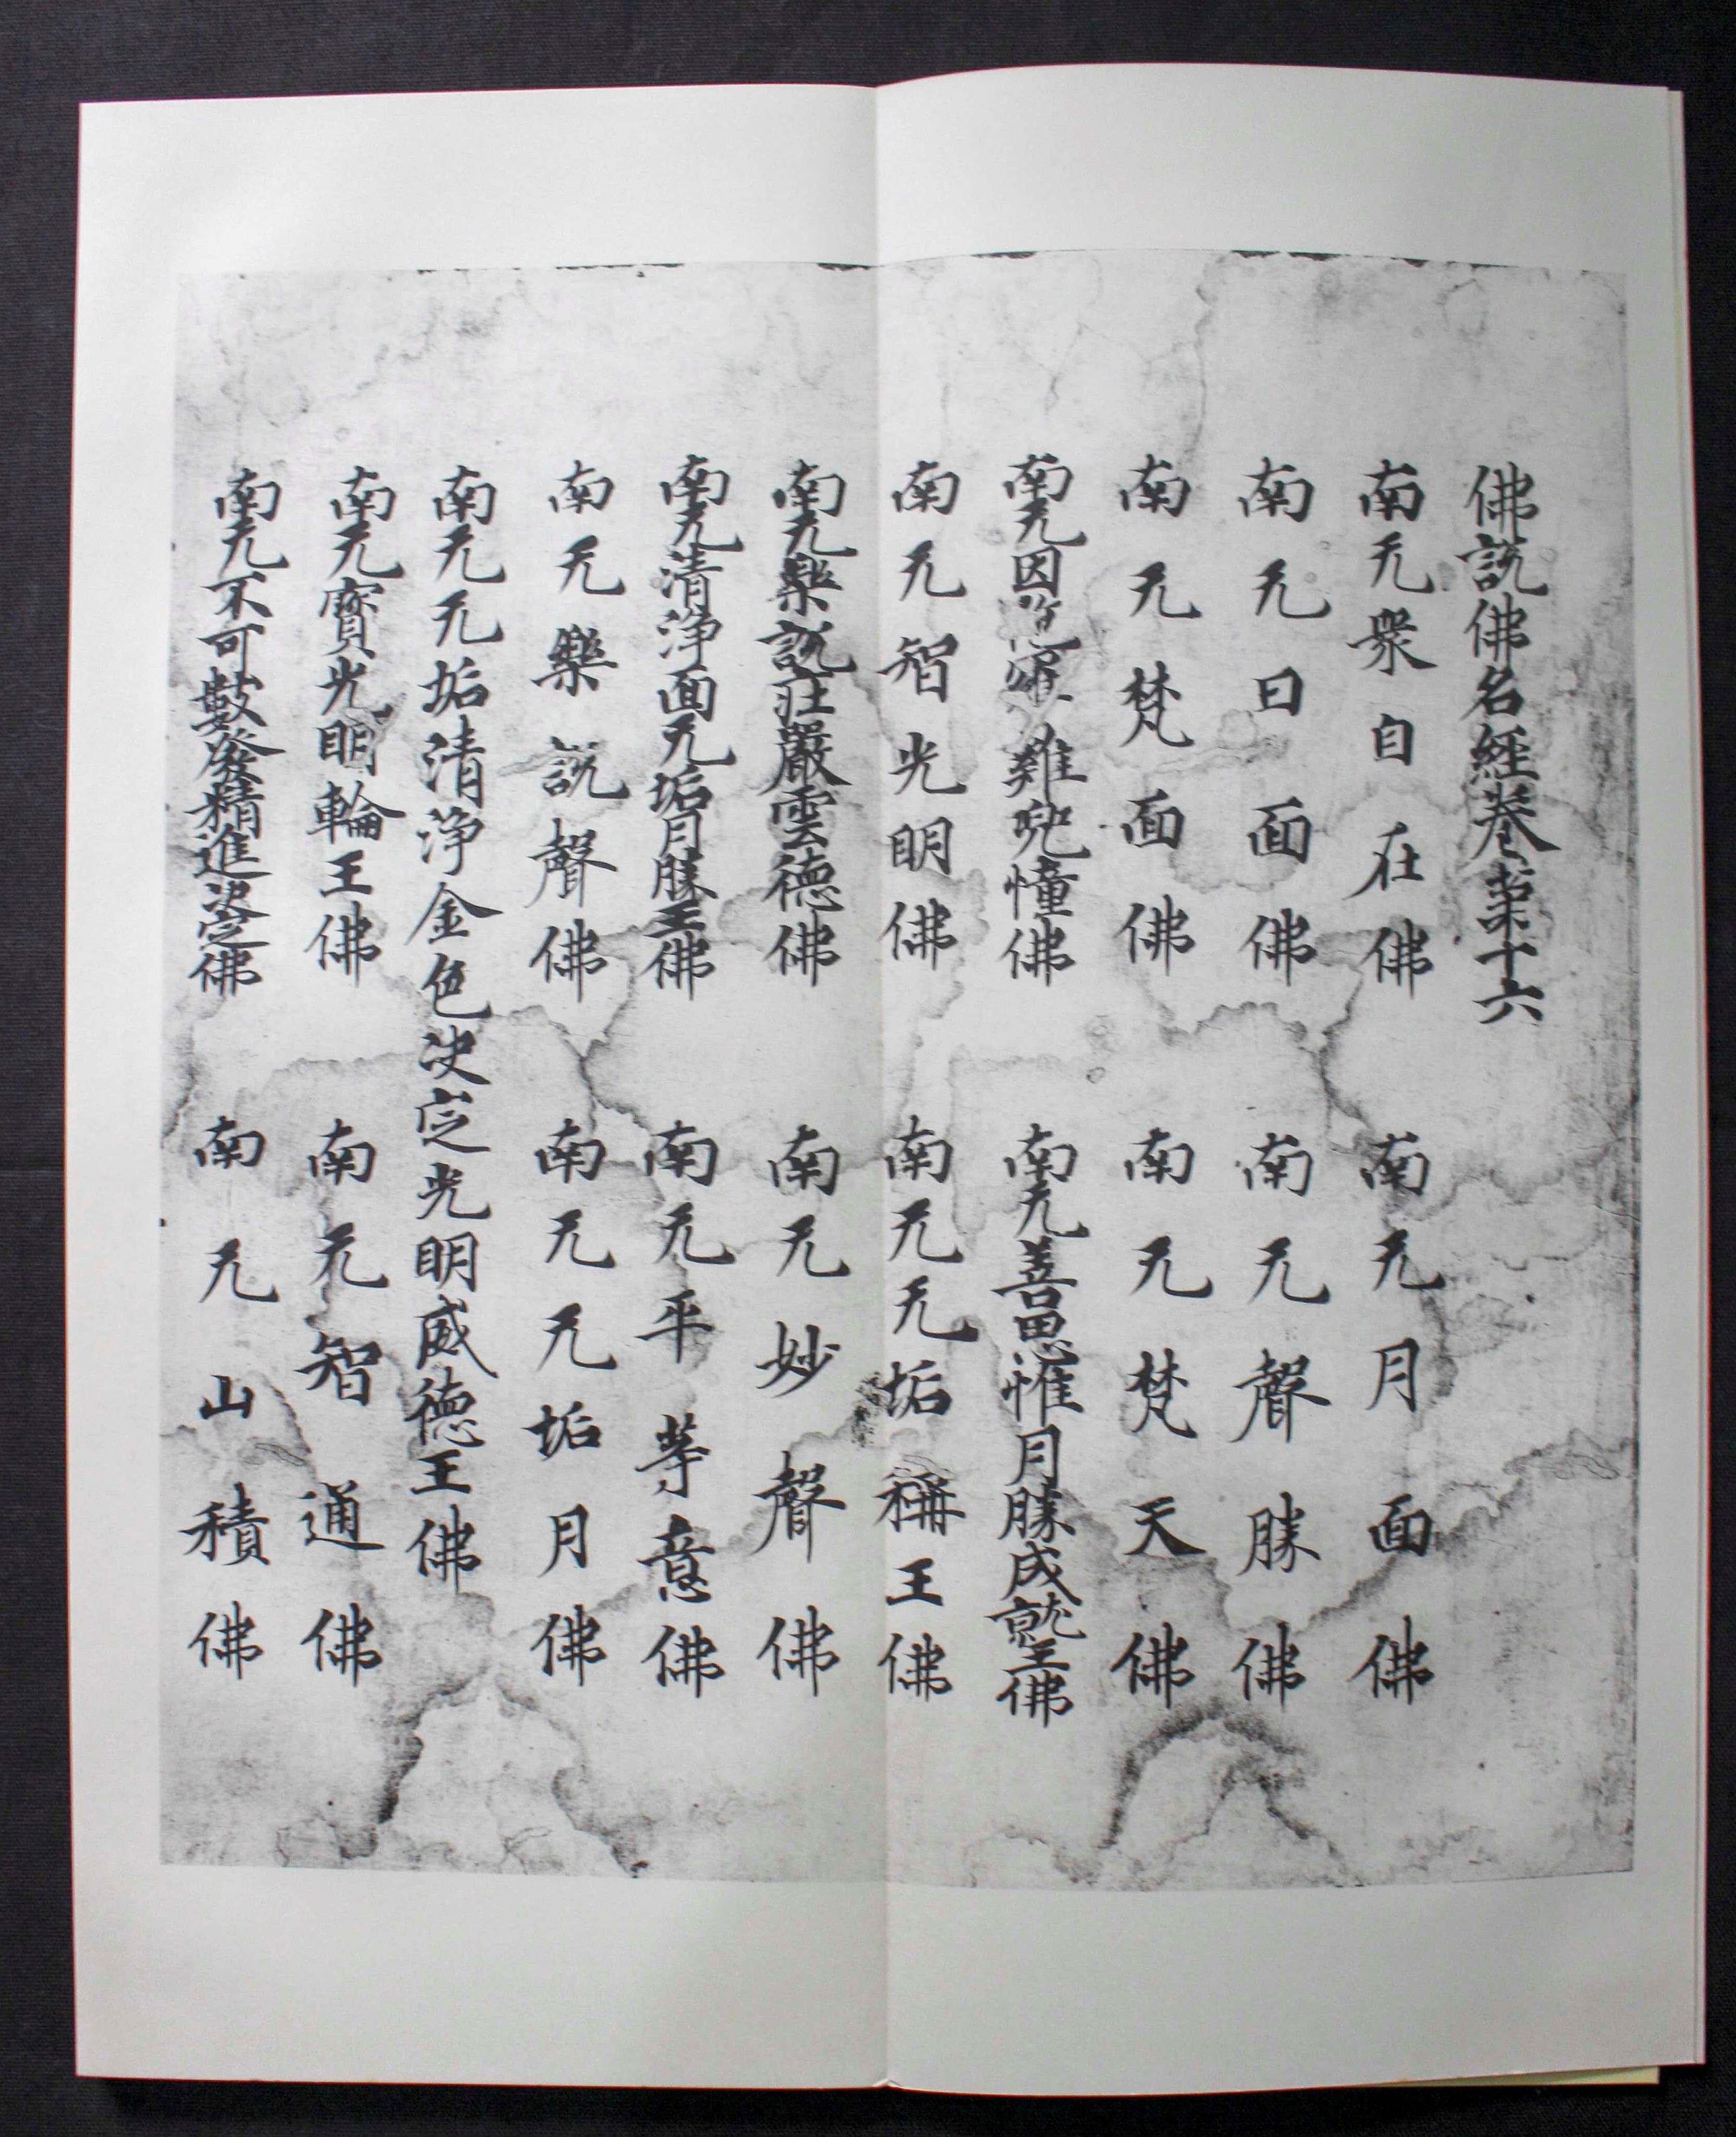 佛說佛名經卷第十六
南无衆自在佛 南无月面佛
南无日面佛 南无聲勝佛
南无梵面佛 南无梵天佛
南无因 難兜憧佛 南无善思惟月勝成就王佛
南无智光明佛 南无无垢稱王佛
南无樂說莊嚴雲德佛 南无妙聲佛
南无清淨面无垢月勝王佛 南无平等意佛
南无樂說聲佛 南无无垢月佛
南无无垢清淨金色决定光明威德王佛
南无寶光明輪王佛 南无智通佛
南无不可數發精進决定佛 南无山積佛